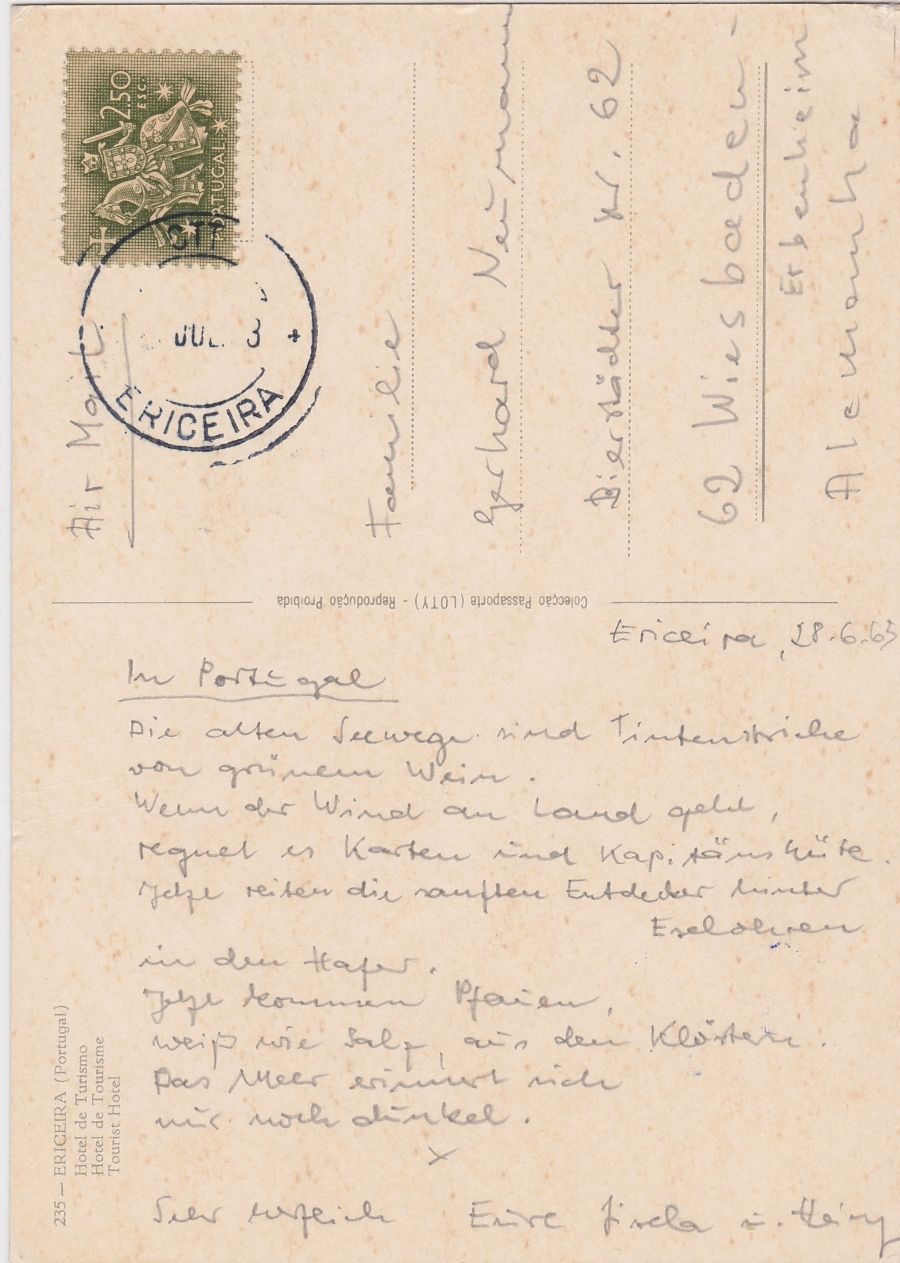 2.50
ESC.
PORTUGAL
CTT
JUL. 3
ERICEIRA
Air Mail
Familie
Gerhard Neumann
Bierstädter Nr. 62
62 Wiesbaden-
Erbenheim
Alemanha
Colecção Passaporte (LOTY) - Reprodução Proibida
Ericeira, 28.6.63
In Portugal
Die alten Seewege sind Tintenstriche
von grünem Wein.
Wenn der Wind an Land geht,
regnet es Karten und Kapitänshüte.
Jetzt reiten die sanften Entdecker hinter
Eselohren
in den Hafer.
Jetzt kommen Pfauen,
weiß wie Salz, aus den Klöstern.
Das Meer erinnert sich
nur noch dunkel.
x
Sehr herzlich Eure Gisela u. Heinz
235 — ERICEIRA (Portugal)
Hotel de Turismo
Hotel de Tourisme
Tourist Hotel